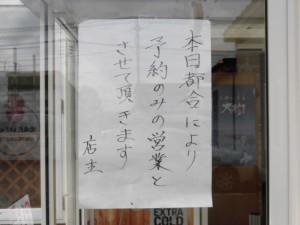 本日都合により
予約のみの営業と
させて頂きます
店主
EXTRA
COLD